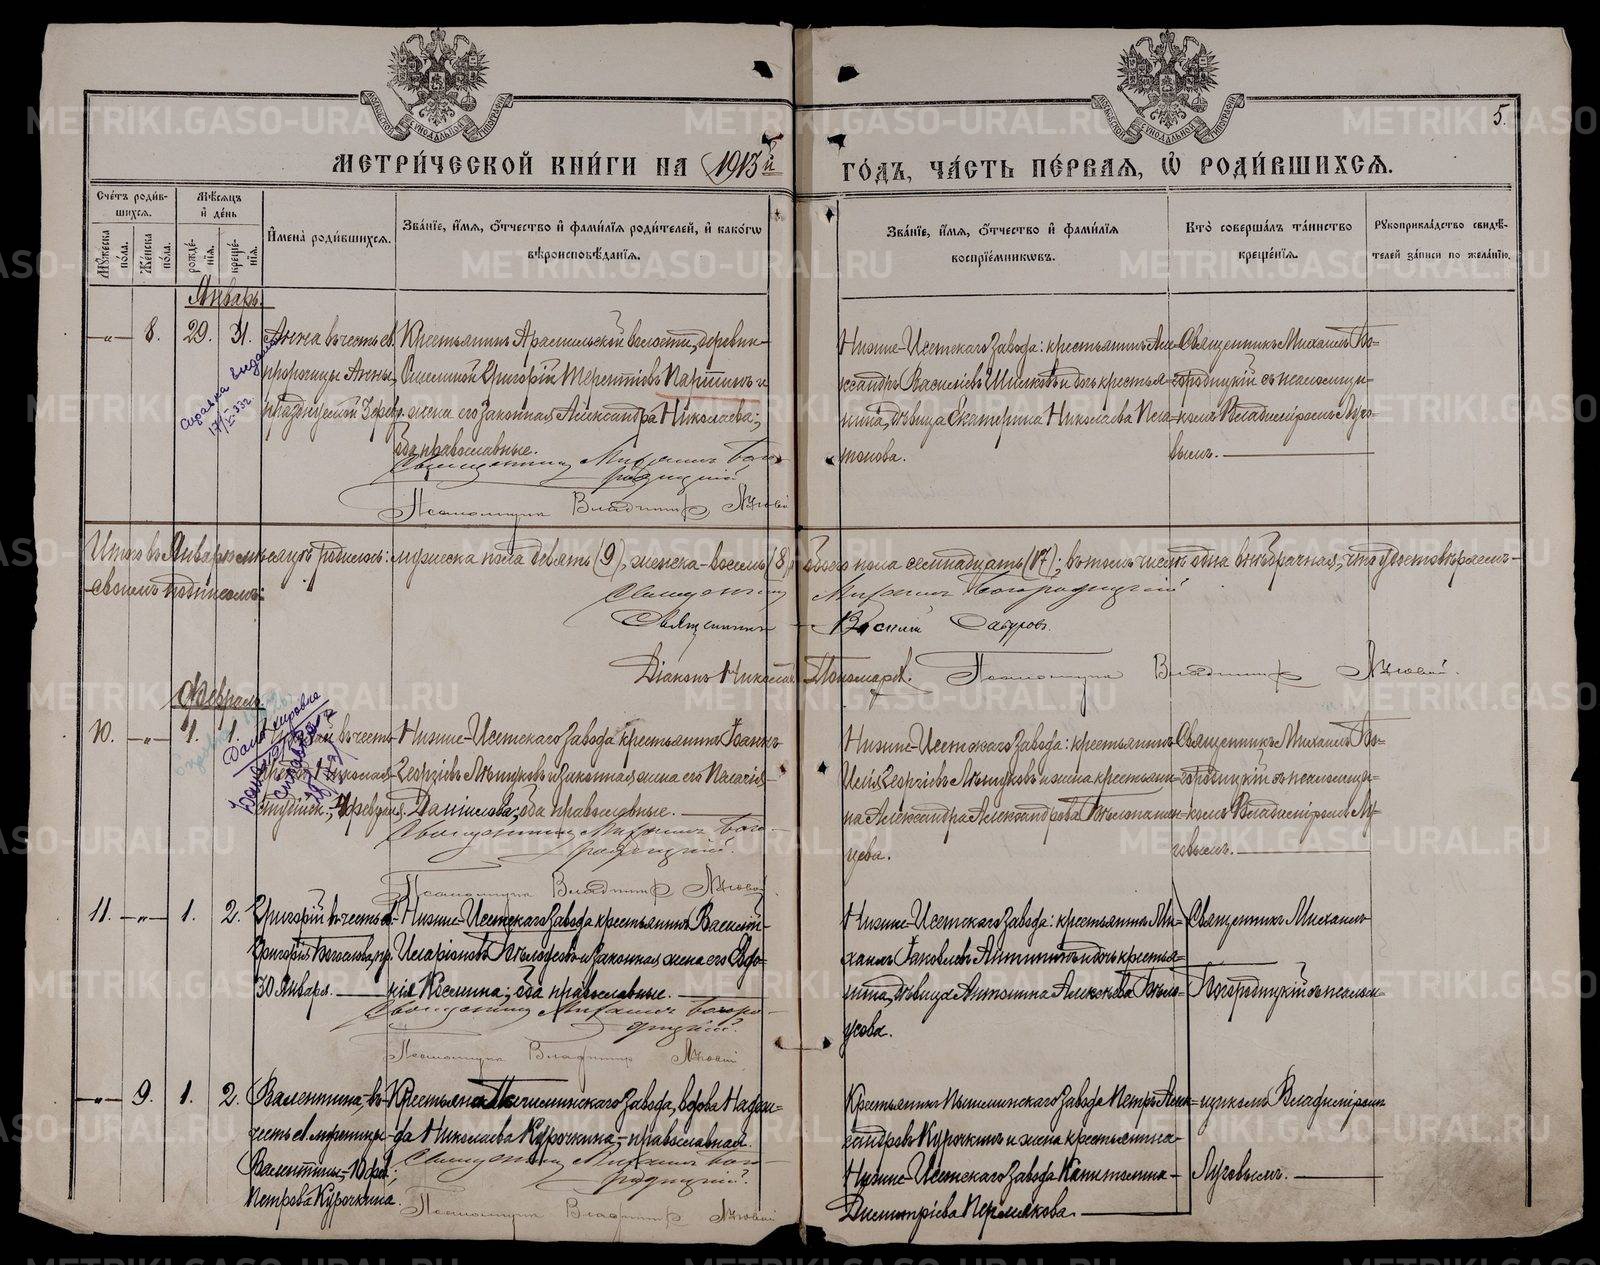 МЕТРИ́ЧЕСКОЙ КНИ́ГИ НА 1913й
ГО́ДЪ, ЧА́СТЬ ПЕ́РВАЯ, Ѡ҆ РОДИ́ВШИХСЯ.
5.
Сче́тъ роди́вшихся.
Мꙋ́жеска по́ла.
Же́нска по́ла.
Мѣ́сяцъ и҆ де́нь
рожде́нїя.
креще́нїя.
И҆мена̀ роди́вшихся.
Зва́нїе, и҆́мя, ѻ҆́тчество и҆ фами́лїя роди́телей, и҆ како́гѡ вѣроисповѣ́данїя.
Зва́нїе, и҆́мя, ѻ҆́тчество и҆ фами́лїя воспрїе́мниковъ.
Кто̀ соверша́лъ та́инство креще́нїя.
Рꙋкоприкла́дство свидѣ́телей за́писи по жела́нїю.
Январь.
-"- 8. 29. 31.
Анна въ честь св.
пророчицы Анны,
Крестьянинъ Арамильской волости, деревни
Григорій Терентіевъ Паршинъ и
жена его законная Александра Николаева;
оба православные.
Священникъ Михаилъ Богородицкій
Псаломщикъ Владимиръ Луговой
Справка выдана
Нижне-Исетскаго завода: крестьянинъ Александръ Василіевъ
и дочь крестьянина, дѣвица Екатерина Николаева
Священникъ Михаилъ Богородицкій съ псаломщикомъ Владиміромъ Луговымъ.
Итого въ Январѣ мѣсяцѣ родилось: мужеска пола девять (9), женска - восемь (8), обоего пола семнадцать (17); въ томъ числѣ одна внѣбрачная, что удостовѣряемъ
своимъ подписомъ:
Священникъ Михаилъ Богородицкій
Священникъ Василій
Діаконъ Николай Пономаревъ.
Псаломщикъ Владимиръ Луговой.
Февраль.
10. -"- 1.
въ честь
Николая
Студійск., 4 февраля.
Нижне-Исетскаго завода крестьянинъ Іоаннъ
Георгіевъ и законная жена его Пелагія
Даніилова; оба православные.
Священникъ Михаилъ Богородицкій.
Псаломщикъ Владимиръ Луговой.
Нижне-Исетскаго завода: крестьянинъ
Илія Георгіевъ и жена крестьянина Александра Александрова
Священникъ Михаилъ Богородицкій съ псаломщикомъ Владиміромъ Луговымъ.
11. -"- 1. 2.
Григорій въ честь св.
Григорія Богослова, пр.
30 Января.
Нижне-Исетскаго завода крестьянинъ Василій
Иларіоновъ и законная жена его Евдокія Космина; оба православные.
Священникъ Михаилъ Богородицкій.
Псаломщикъ Владимиръ Луговой
Нижне-Исетскаго завода: крестьянинъ Михаилъ Іаковлевъ
и дочь крестьянина, дѣвица Антонина Алексѣева Бѣлоусова.
Священникъ Михаилъ
Богородицкій съ псаломщикомъ Владиміромъ
Луговымъ.
-"- 9. 1. 2.
Валентина, въ
честь св. мученицы
Валентины, 10 фев.;
Петрова Курочкина.
Крестьянка Пышминскаго завода, вдова Надежда Николаева Курочкина, православная.
Священникъ Михаилъ Богородицкій.
Псаломщикъ Владимиръ Луговой
Крестьянинъ Пышминскаго завода Петръ Александровъ Курочкинъ и жена крестьянина
Нижне-Исетскаго завода Капитолина
Димитріева Пермякова.
METRIKI.GASO-URAL.RU